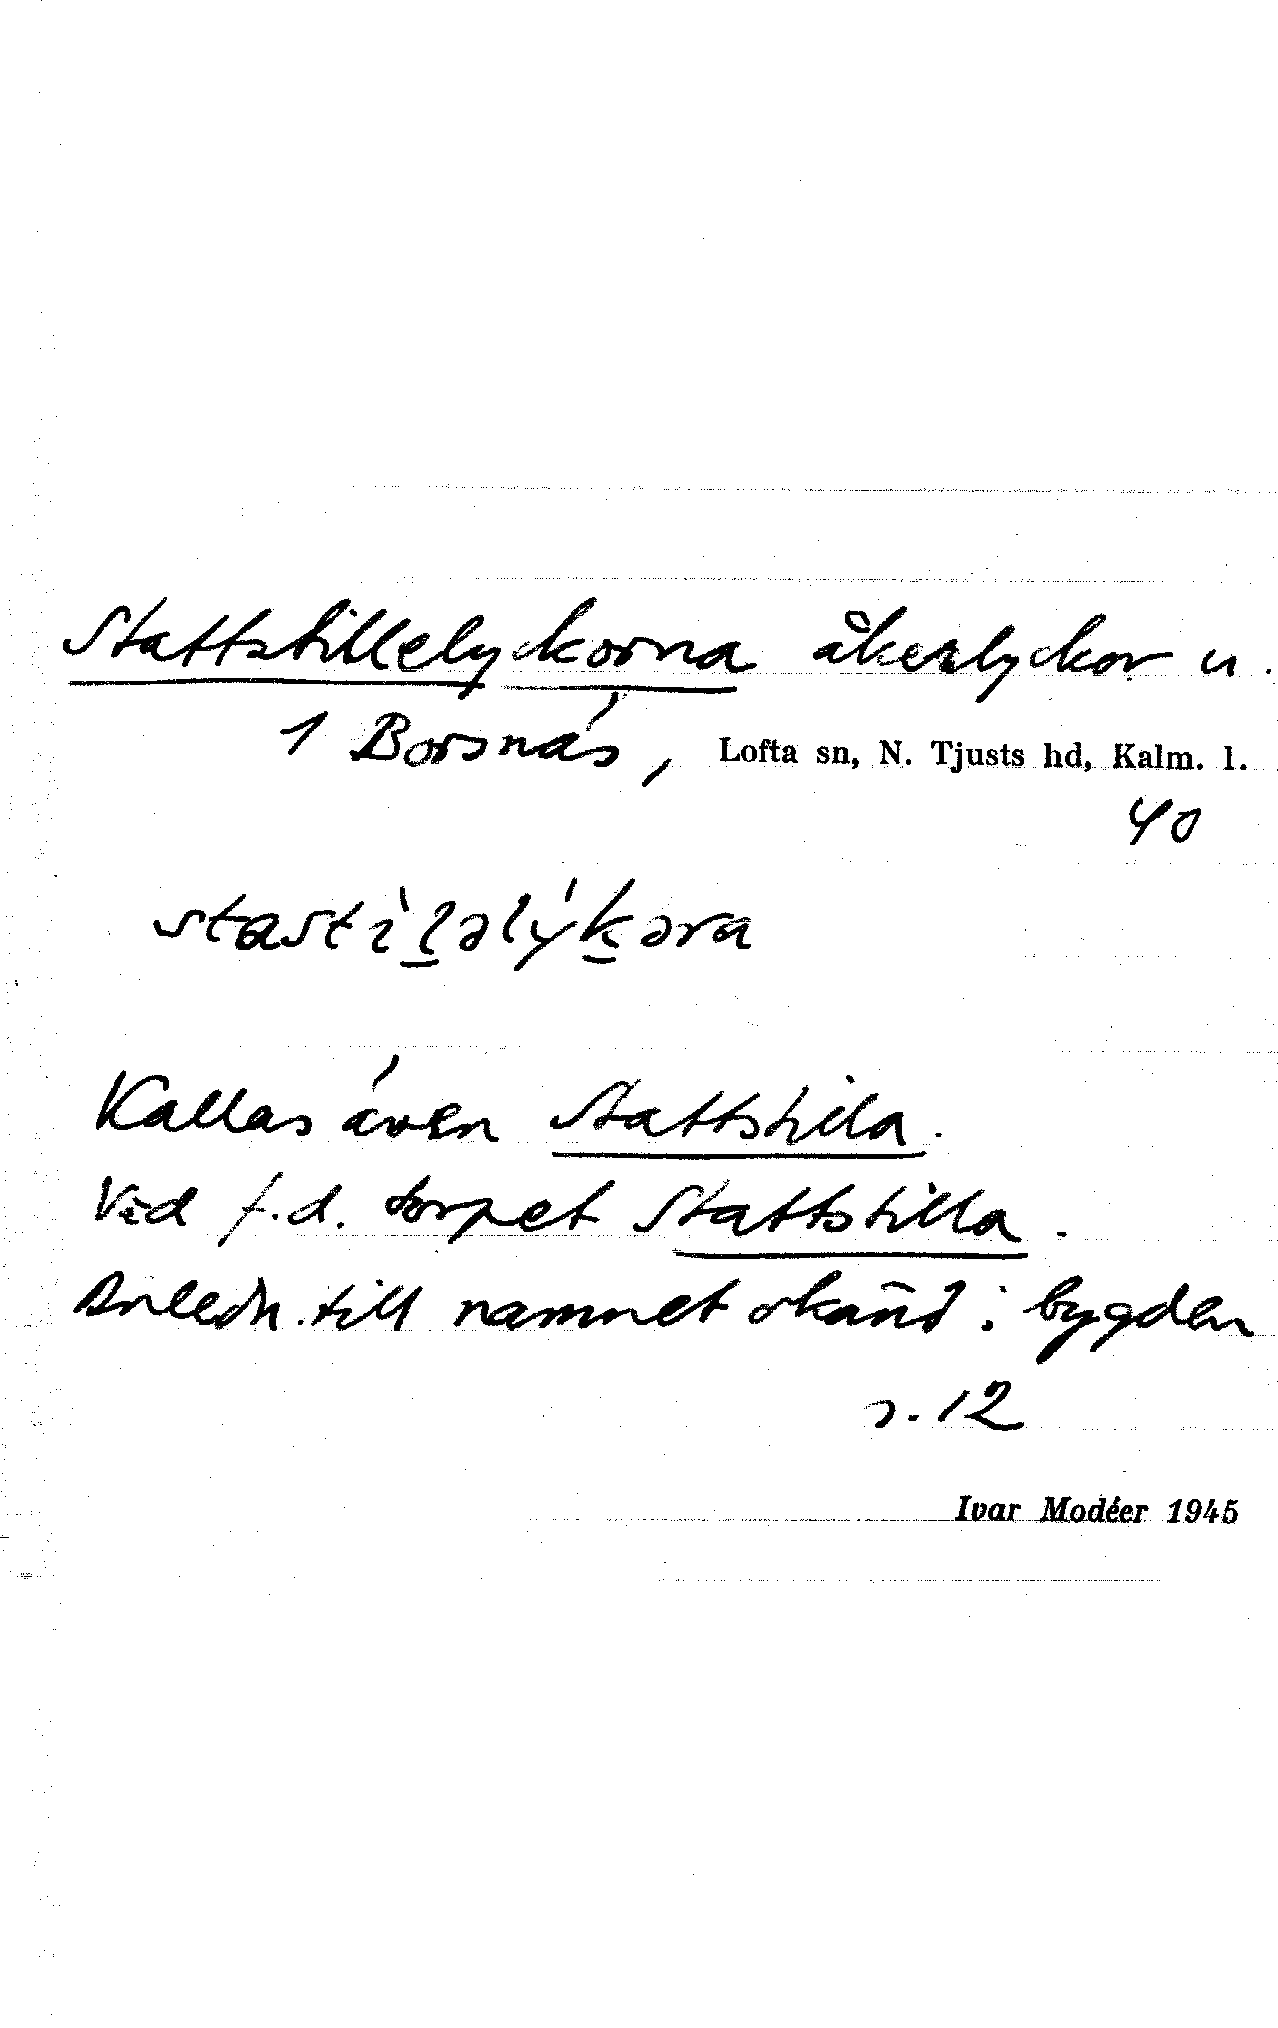 Stattstillelyckorna åkerlyckor u.
1 Borsnäs, Lofta sn, N. Tjusts hd, Kalm. l.
40
stastìl̲əlýk̲əra
Kallas även Stattstilla.
Ved f.d. torpet Stattstilla.
Anledn. till namnet okänd i bygden
s. 12
Ivar Modéer 1945